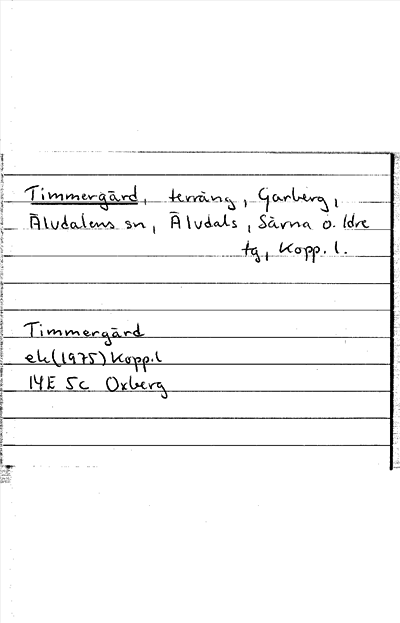 Timmergärd, terräng, Garberg,
Älvdalens sn, Älvdals, Särna o. Idre
tg, Kopp. l.
Timmergärd
ek (1975) Kopp.l
14E 5c Oxberg